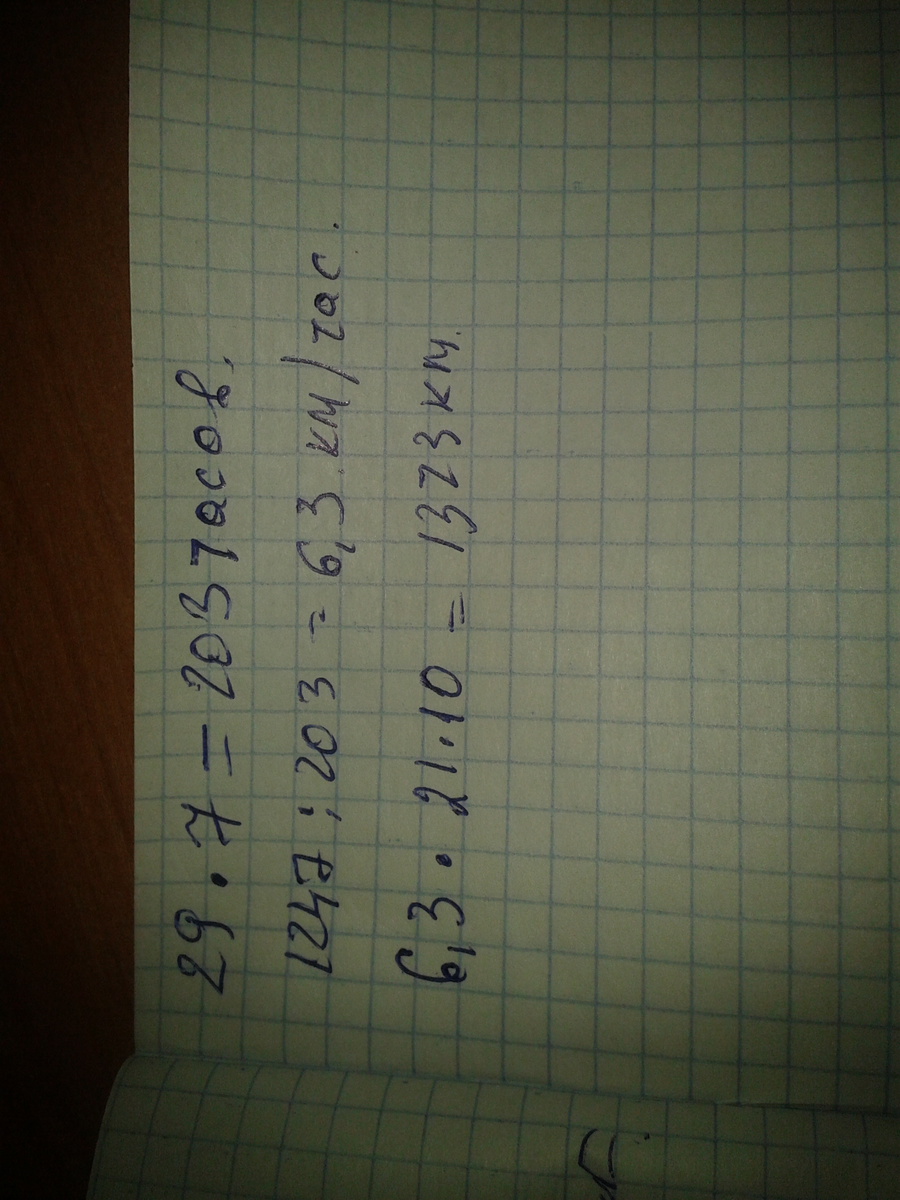 29 · 7 = 203 часов.
1247 : 203 = 6,3 км/час.
6,3 · 21 · 10 = 1323 км.